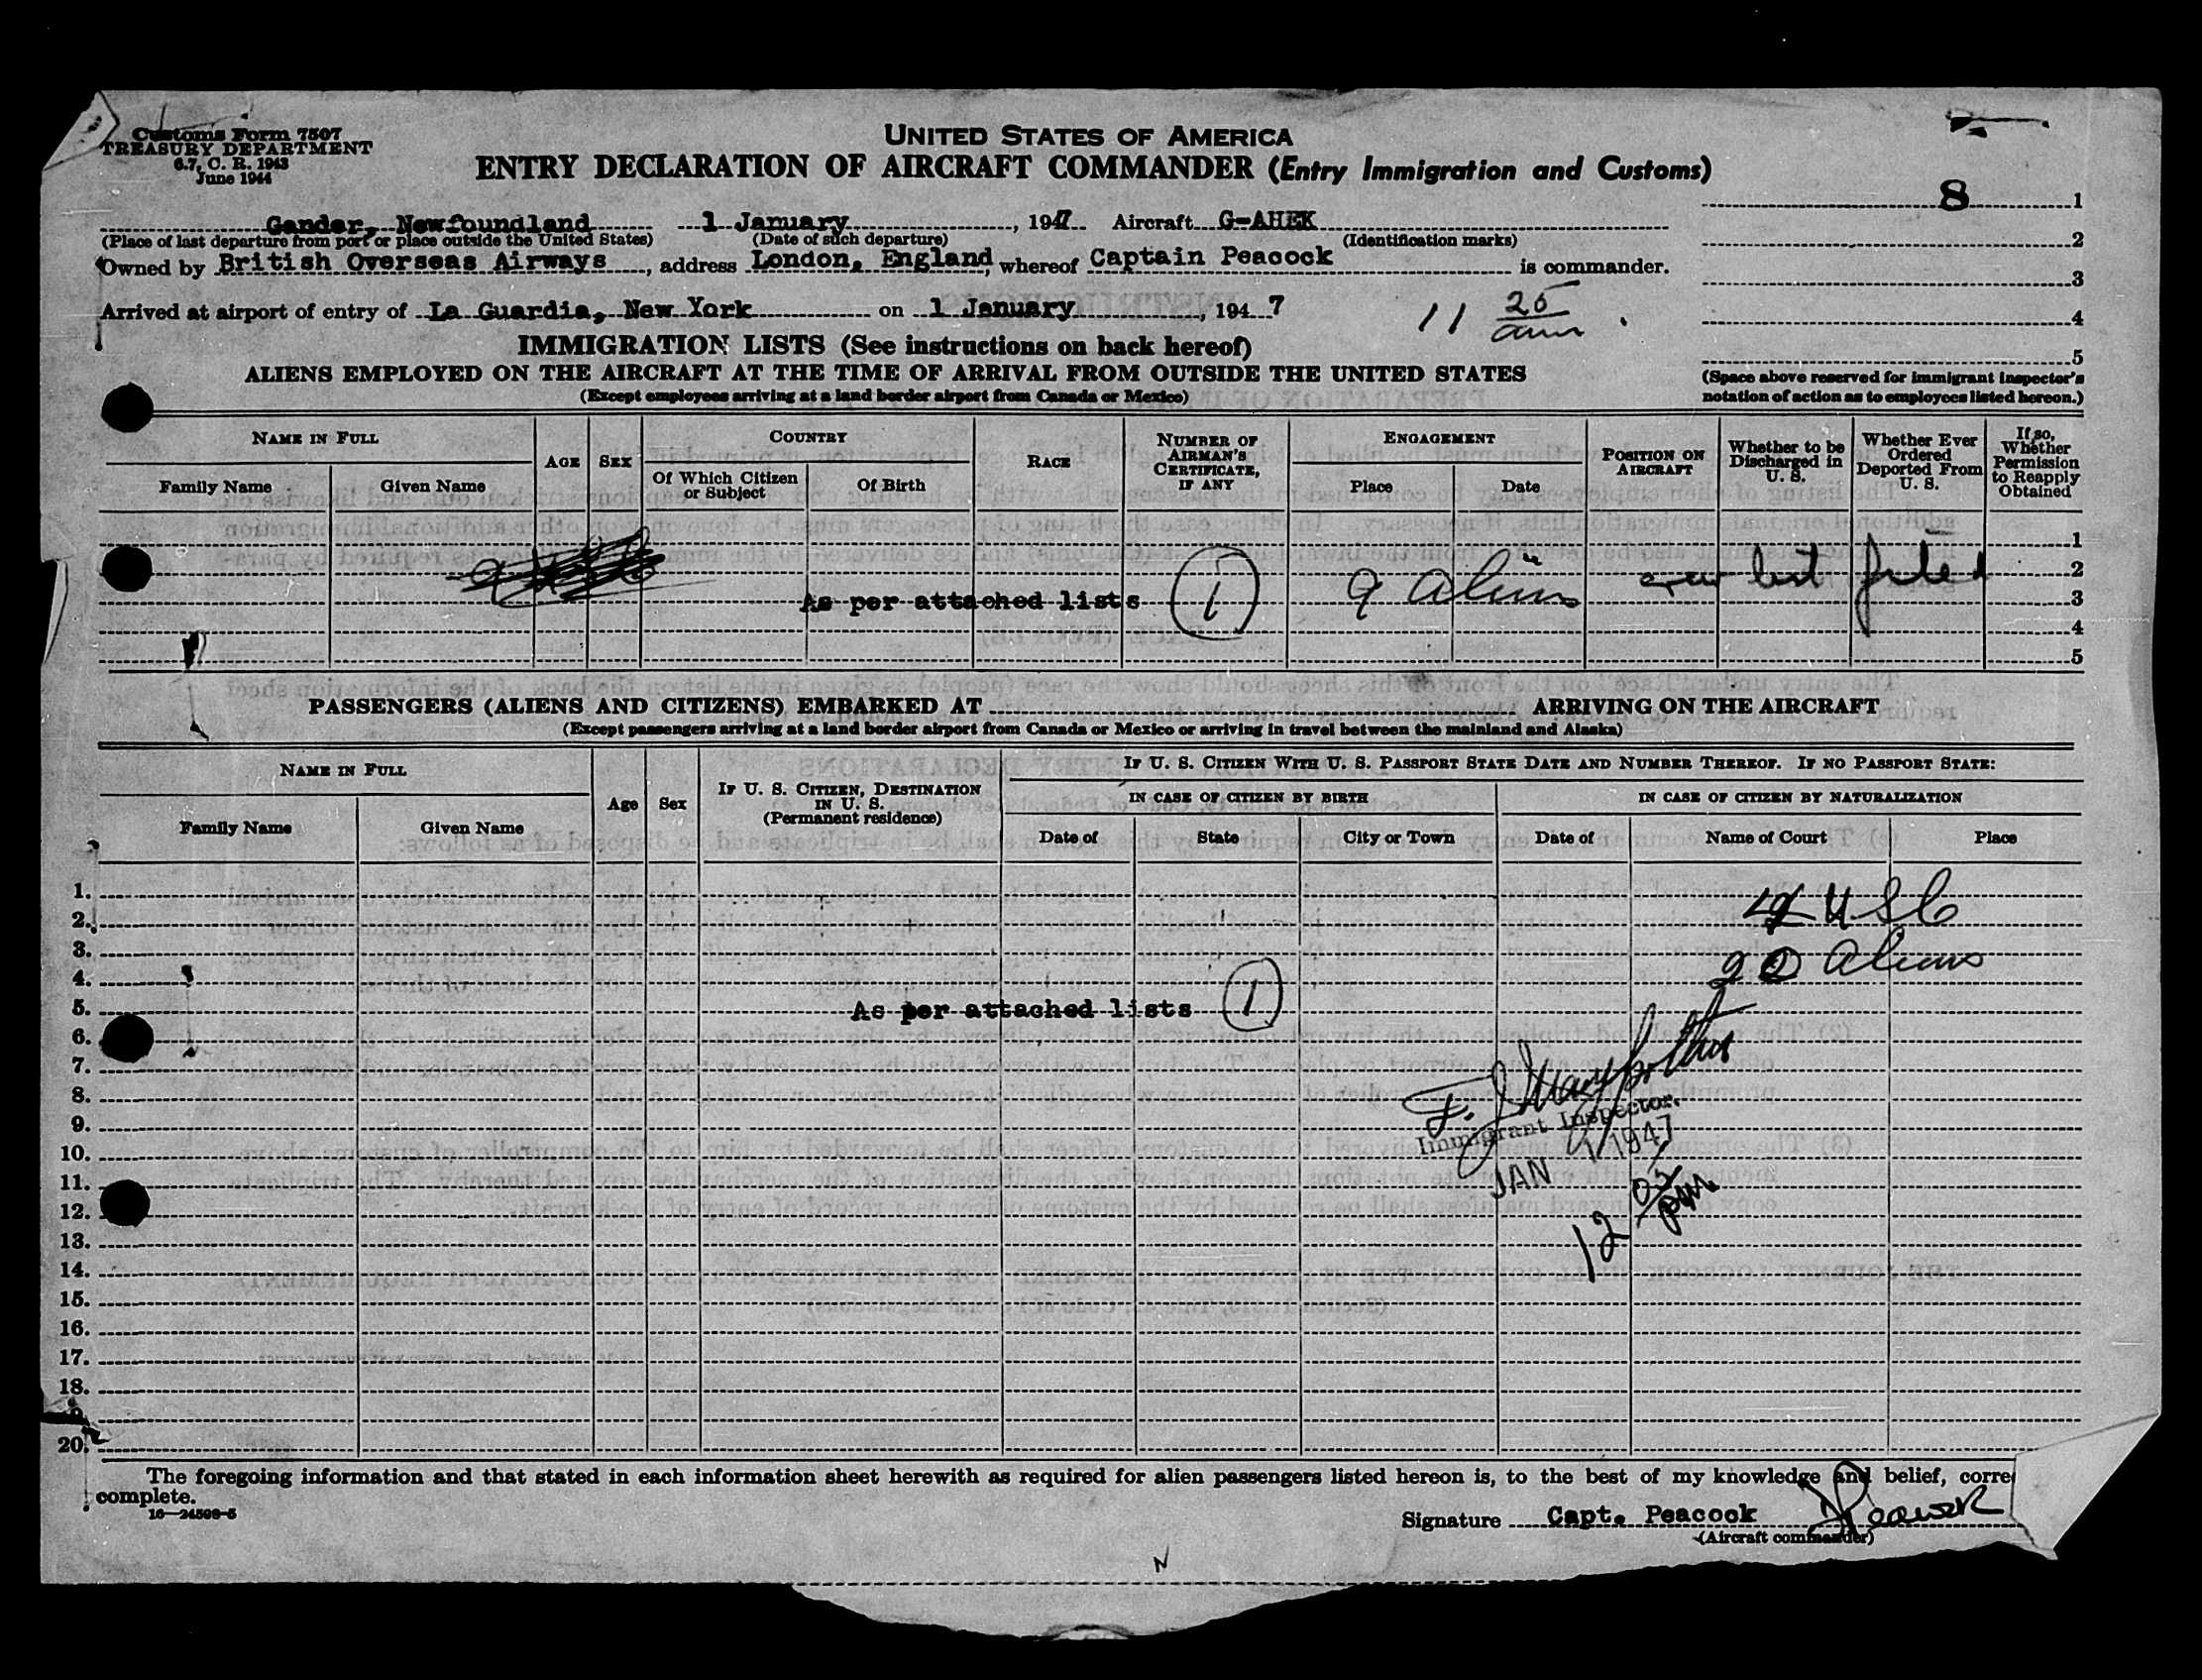 Customs Form 7507
TREASURY DEPARTMENT
6.7, C. R. 1943
June 1944
UNITED STATES OF AMERICA
ENTRY DECLARATION OF AIRCRAFT COMMANDER (Entry Immigration and Customs)
8 1
2
3
4
5
(Space above reserved for immigrant inspector's
notation of action as to employees listed hereon.)
Gander, Newfoundland 1 January, 1947 Aircraft G-AHEK
(Place of last departure from port or place outside the United States) (Date of such departure) (Identification marks)
Owned by British Overseas Airways, address London, England, whereof Captain Peacock is commander.
Arrived at airport of entry of La Guardia, New York on 1 January, 1947 11 25 am
IMMIGRATION LISTS (See instructions on back hereof)
ALIENS EMPLOYED ON THE AIRCRAFT AT THE TIME OF ARRIVAL FROM OUTSIDE THE UNITED STATES
(Except employees arriving at a land border airport from Canada or Mexico)
NAME IN FULL
Family Name
Given Name
AGE
SEX
COUNTRY
Of Which Citizen or Subject
Of Birth
RACE
NUMBER OF AIRMAN'S CERTIFICATE, IF ANY
ENGAGEMENT
Place
Date
POSITION ON AIRCRAFT
Whether to be Discharged in U. S.
Whether Ever Ordered Deported From U. S.
If so, Whether Permission to Reapply Obtained
1
2
As per attached lists 1 9 Aliens crew list 3
4
5
PASSENGERS (ALIENS AND CITIZENS) EMBARKED AT ARRIVING ON THE AIRCRAFT
(Except passengers arriving at a land border airport from Canada or Mexico or arriving in travel between the mainland and Alaska)
NAME IN FULL
Family Name
Given Name
Age
Sex
IF U. S. CITIZEN, DESTINATION IN U. S.
(Permanent residence)
IF U. S. CITIZEN WITH U. S. PASSPORT STATE DATE AND NUMBER THEREOF. IF NO PASSPORT STATE:
IN CASE OF CITIZEN BY BIRTH
Date of
State
City or Town
IN CASE OF CITIZEN BY NATURALIZATION
Date of
Name of Court
Place
1.
2. USC
3.
4. Aliens
5. As per attached lists 1
6.
7.
8.
9. Immigrant Inspector.
10. JAN 1 1947
11.
12. 12 05 pm
13.
14.
15.
16.
17.
18.
20.
The foregoing information and that stated in each information sheet herewith as required for alien passengers listed hereon is, to the best of my knowledge and belief, corre
complete.
16—24598-5
Signature Capt. Peacock Peacock
(Aircraft commander)
N